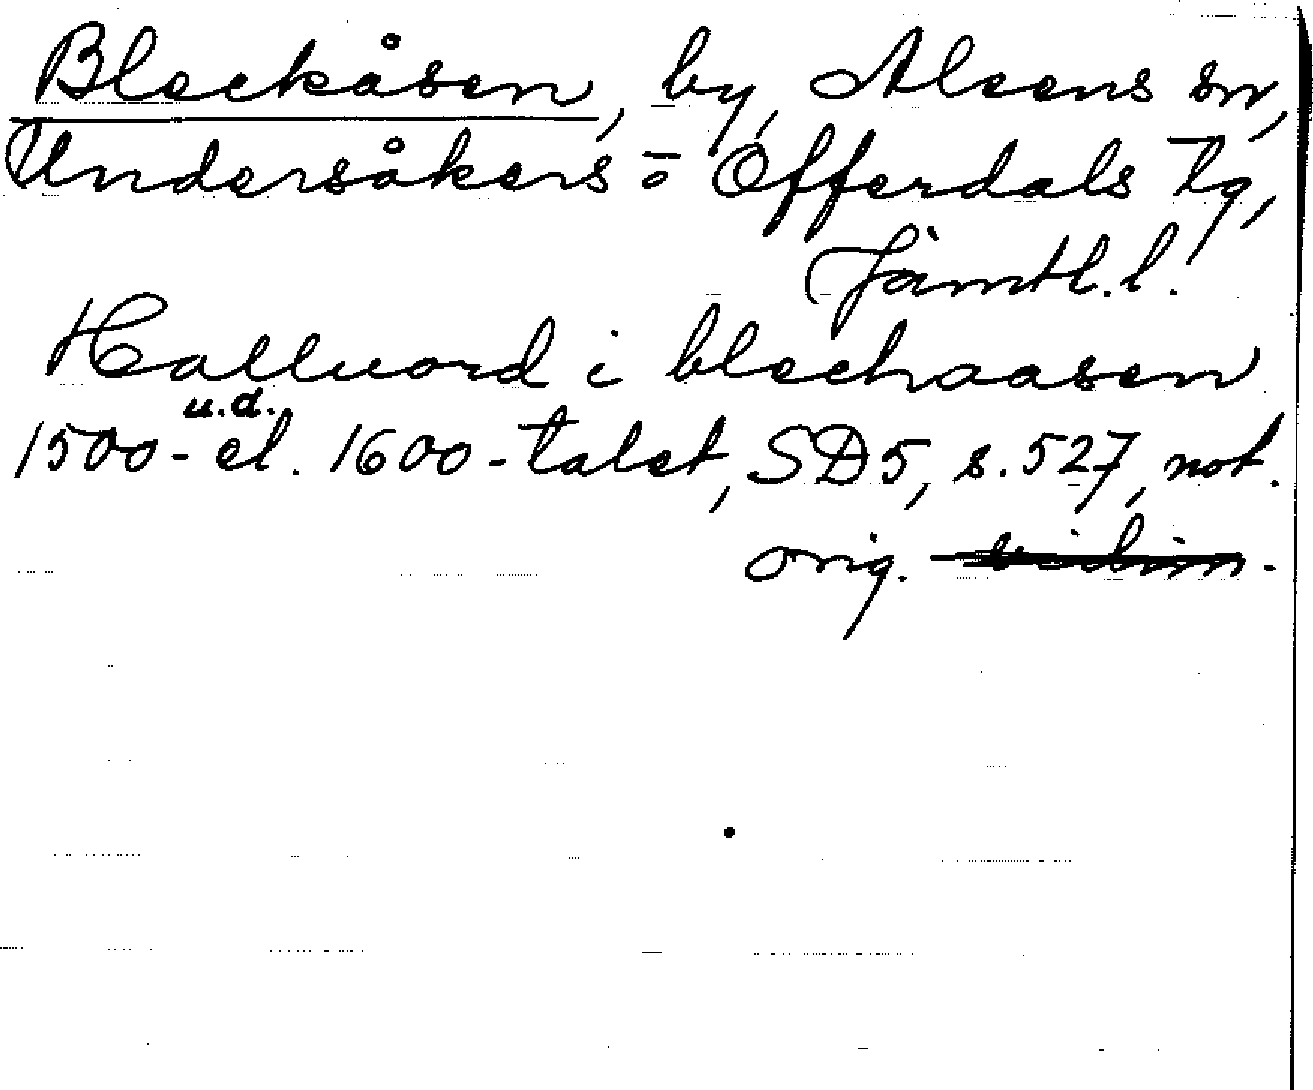 Bleckåsen, by, Alsens sn,
Undersåkers o Offerdals tg,
Jämtl. l.
Halluord i blechaasen
u.d.
1500- el. 1600-talet, SD5, s. 527, not.
orig.